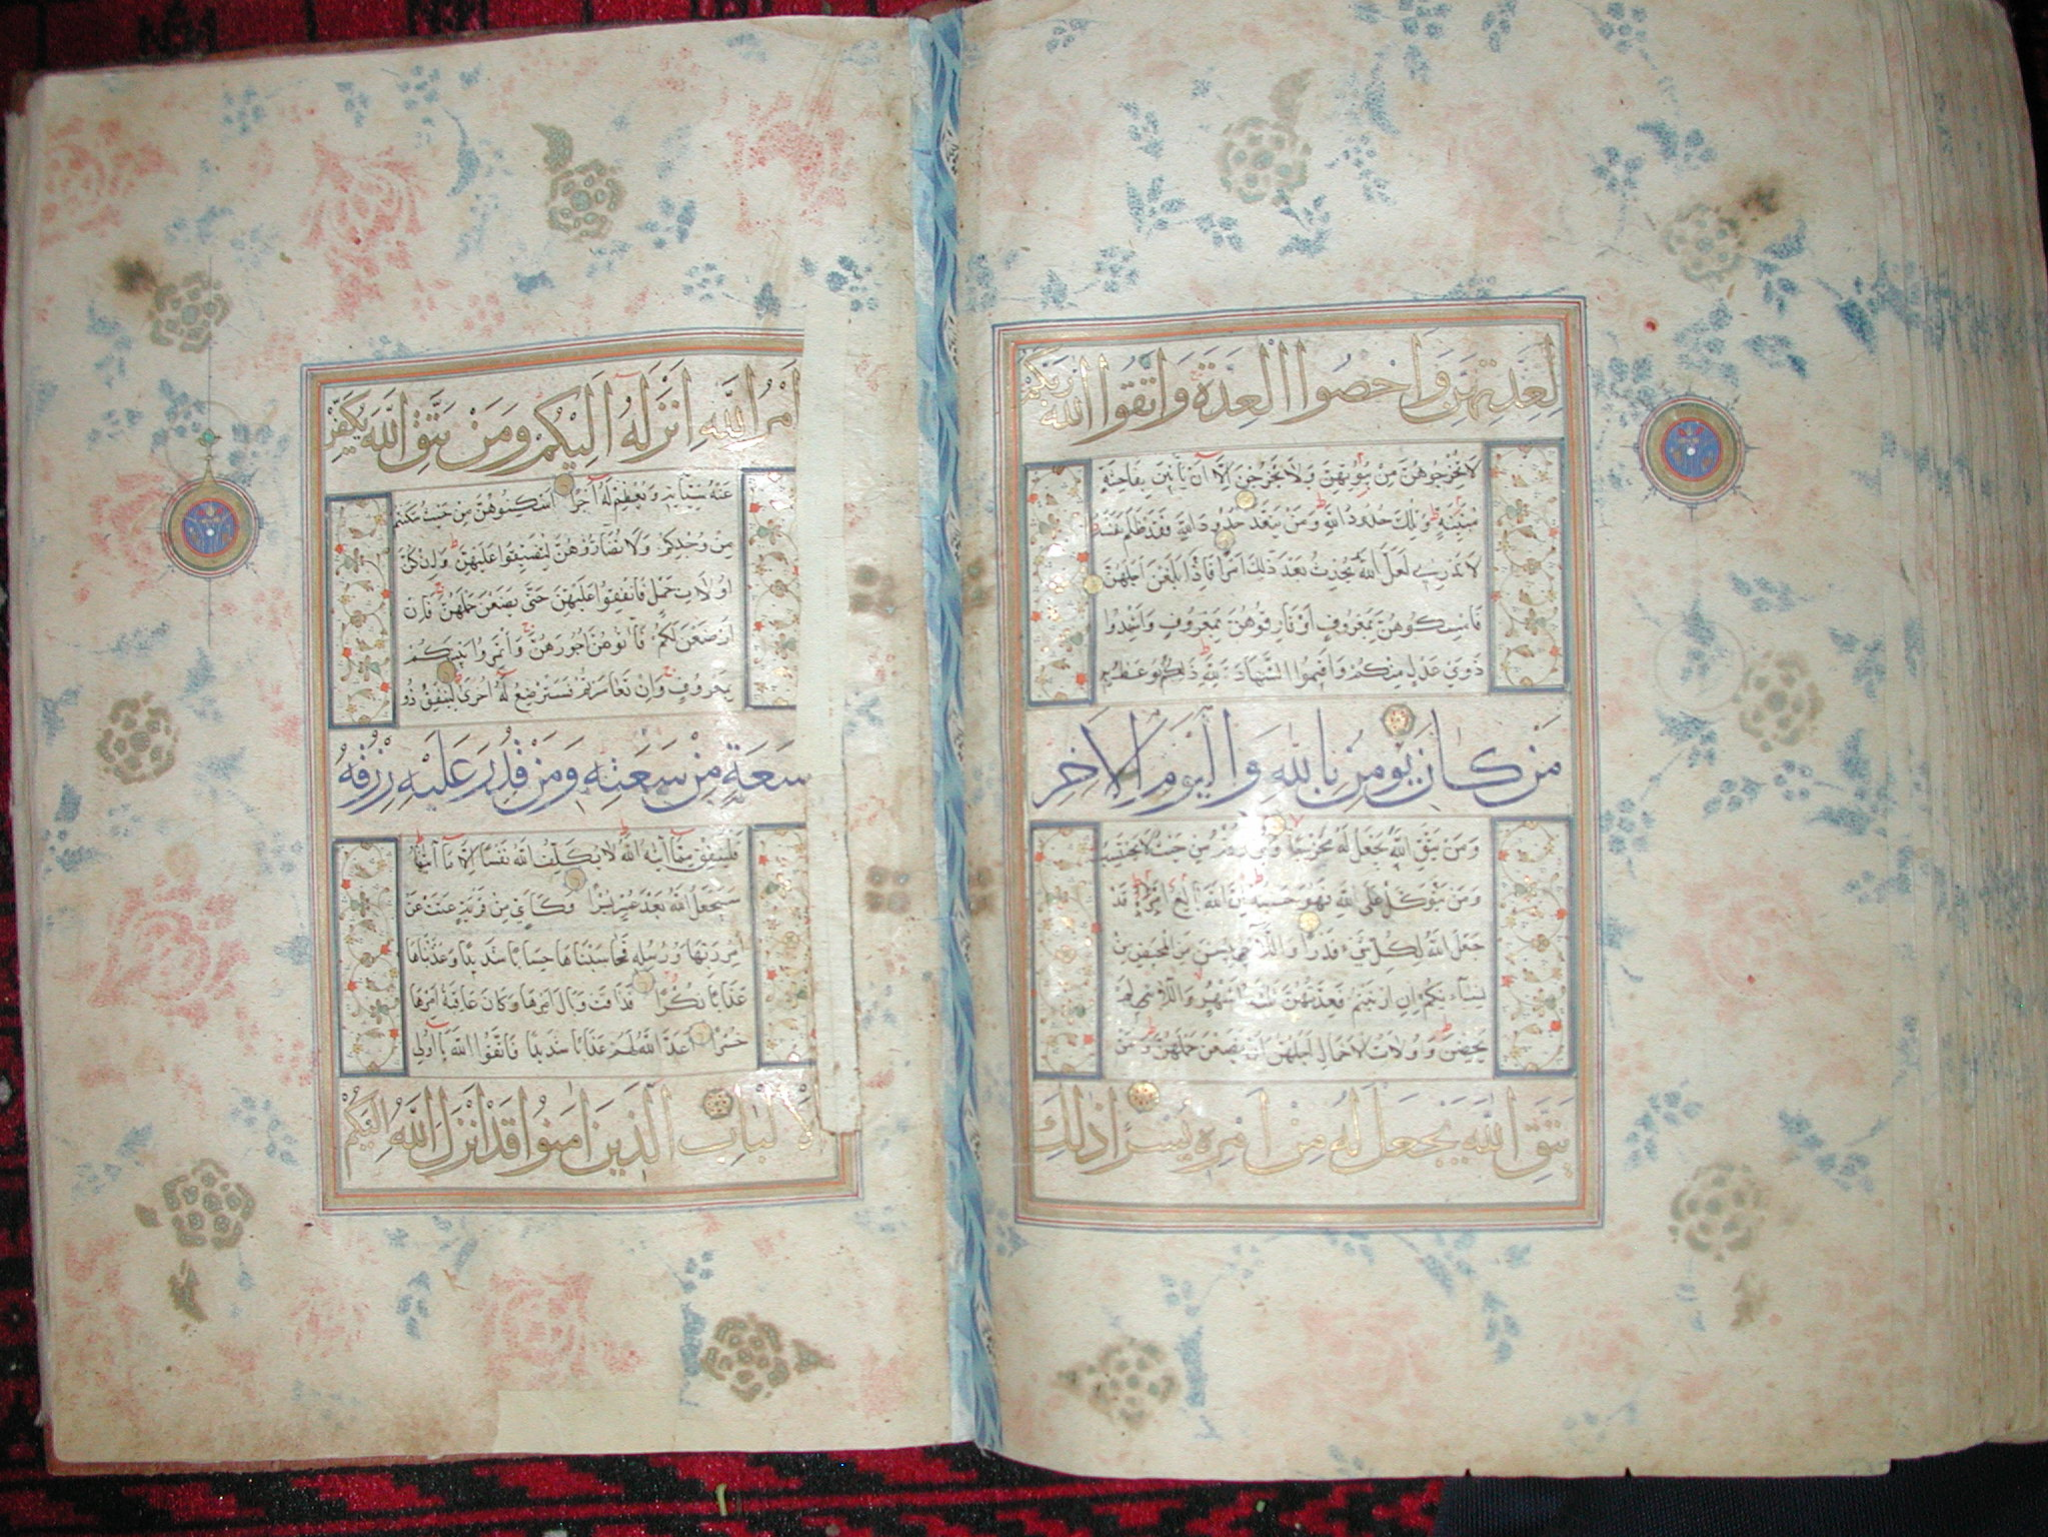 لِعِدَّتِهِنَّ وَاَحْصُوا الْعِدَّةَ وَاتَّقُوا اللَّهَ رَبَّكُمْ
لَا تُخْرِجُوهُنَّ مِنْ بُيُوتِهِنَّ وَلَا يَخْرُجْنَ اِلَّا اَنْ يَأْتِينَ بِفَاحِشَةٍ
مُبَيِّنَةٍ وَتِلْكَ حُدُودُ اللَّهِ وَمَنْ يَتَعَدَّ حُدُودَ اللَّهِ فَقَدْ ظَلَمَ نَفْسَهُ
لَا تَدْرِي لَعَلَّ اللَّهَ يُحْدِثُ بَعْدَ ذَلِكَ اَمْرًا فَاِذَا بَلَغْنَ اَجَلَهُنَّ
فَاَمْسِكُوهُنَّ بِمَعْرُوفٍ اَوْ فَارِقُوهُنَّ بِمَعْرُوفٍ وَاَشْهِدُوا
ذَوَيْ عَدْلٍ مِنْكُمْ وَاَقِيمُوا الشَّهَادَةَ لِلَّهِ ذَلِكُمْ يُوعَظُ بِهِ
مَنْ كَانَ يُومِنُ بِاللَّهِ وَالْيَوْمِ الْاَخِرِ
وَمَنْ يَتَّقِ اللَّهَ يَجْعَلْ لَهُ مَخْرَجًا وَيَرْزُقْهُ مِنْ حَيْثُ لَا يَحْتَسِبُ
وَمَنْ يَتَوَكَّلْ عَلَى اللَّهِ فَهُوَ حَسْبُهُ اِنَّ اللَّهَ بَالِغُ اَمْرِهِ قَدْ
جَعَلَ اللَّهُ لِكُلِّ شَيْءٍ قَدْرًا وَاللَّائِي يَئِسْنَ مِنَ الْمَحِيضِ مِنْ
نِسَائِكُمْ اِنِ ارْتَبْتُمْ فَعِدَّتُهُنَّ ثَلَثَةُ اَشْهُرٍ وَاللَّائِي لَمْ
يَحِضْنَ وَاُولَاتُ الْاَحْمَالِ اَجَلُهُنَّ اَنْ يَضَعْنَ حَمْلَهُنَّ وَمَنْ
يَتَّقِ اللَّهَ يَجْعَلْ لَهُ مِنْ اَمْرِهِ يُسْرًا ذَلِكَ
اَمْرُ اللَّهِ اَنْزَلَهُ اِلَيْكُمْ وَمَنْ يَتَّقِ اللَّهَ يُكَفِّرْ
عَنْهُ سَيِّئَاتِهِ وَيُعْظِمْ لَهُ اَجْرًا اَسْكِنُوهُنَّ مِنْ حَيْثُ سَكَنْتُمْ
مِنْ وُجْدِكُمْ وَلَا تُضَارُّوهُنَّ لِتُضَيِّقُوا عَلَيْهِنَّ وَاِنْ كُنَّ
اُولَاتِ حَمْلٍ فَاَنْفِقُوا عَلَيْهِنَّ حَتَّى يَضَعْنَ حَمْلَهُنَّ فَاِنْ
اَرْضَعْنَ لَكُمْ فَآتُوهُنَّ اُجُورَهُنَّ وَاْتَمِرُوا بَيْنَكُمْ
بِمَعْرُوفٍ وَاِنْ تَعَاسَرْتُمْ فَسَتُرْضِعُ لَهُ اُخْرَى لِيُنْفِقْ ذُو
سَعَةٍ مِنْ سَعَتِهِ وَمَنْ قُدِرَ عَلَيْهِ رِزْقُهُ
فَلْيُنْفِقْ مِمَّا آتَاهُ اللَّهُ لَا يُكَلِّفُ اللَّهُ نَفْسًا اِلَّا مَا آتَاهَا
سَيَجْعَلُ اللَّهُ بَعْدَ عُسْرٍ يُسْرًا وَكَاَيِّنْ مِنْ قَرْيَةٍ عَتَتْ عَنْ
اَمْرِ رَبِّهَا وَرُسُلِهِ فَحَاسَبْنَاهَا حِسَابًا شَدِيدًا وَعَذَّبْنَاهَا
عَذَابًا نُكْرًا فَذَاقَتْ وَبَالَ اَمْرِهَا وَكَانَ عَاقِبَةُ اَمْرِهَا
خُسْرًا اَعَدَّ اللَّهُ لَهُمْ عَذَابًا شَدِيدًا فَاتَّقُوا اللَّهَ يَا اُولِي
الْاَلْبَابِ الَّذِينَ اَمَنُوا قَدْ اَنْزَلَ اللَّهُ اِلَيْكُمْ